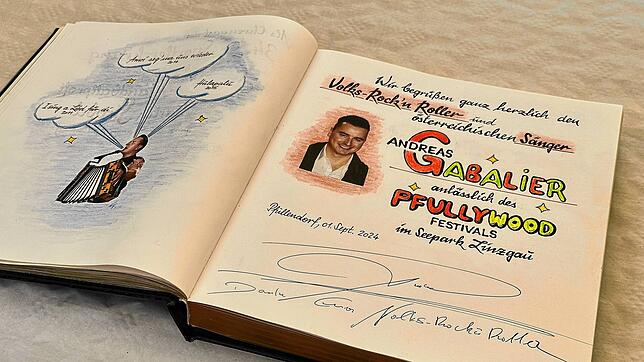 Amoi seg' ma uns wieder
2014
Hulapalu
2015
I sing a Liad für di
2011
Wir begrüßen ganz herzlich den
Volks-Rock'n Roller und
österreichischen Sänger
ANDREAS
GABALIER
anlässlich des
PFULLYWOOD
FESTIVALS
im Seepark Linzgau
Pfullendorf, 01. Sept. 2024
Danke
Volks-Rock'n Roller